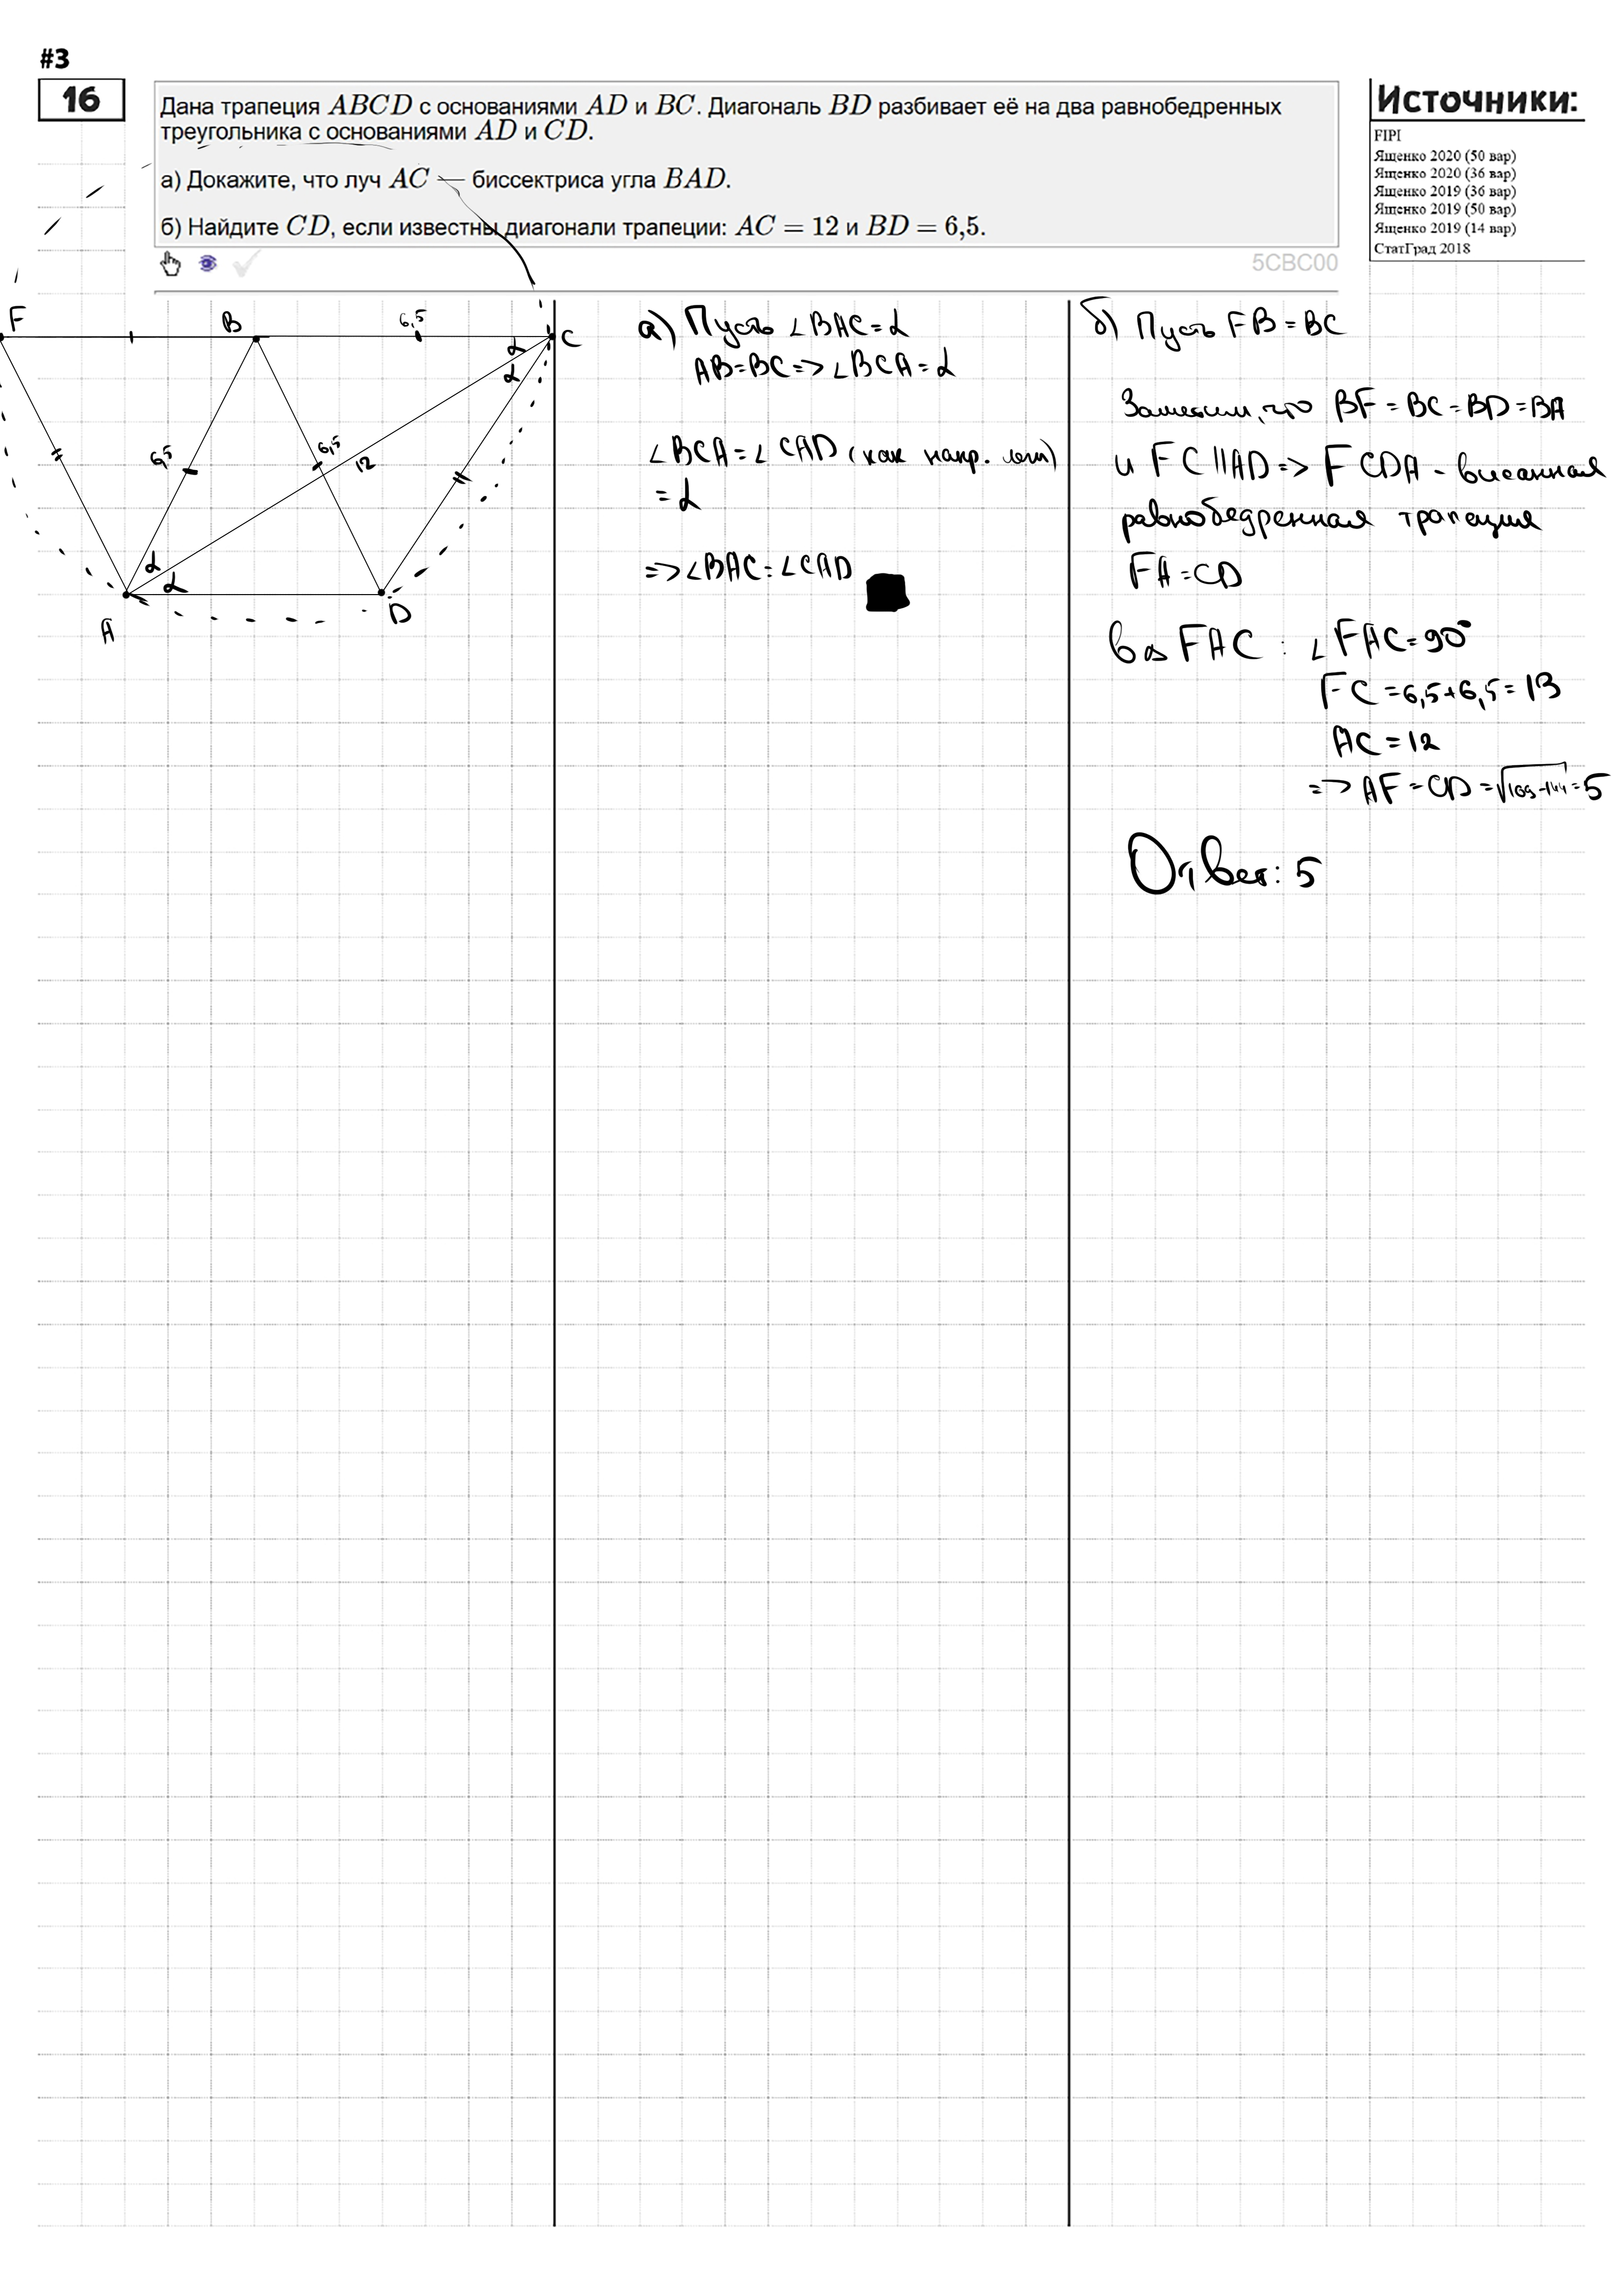 #3
16
Дана трапеция ABCD с основаниями AD и BC. Диагональ BD разбивает её на два равнобедренных
треугольника с основаниями AD и CD.
а) Докажите, что луч AC — биссектриса угла BAD.
б) Найдите CD, если известны диагонали трапеции: AC = 12 и BD = 6,5.
5CBC00
Источники:
FIPI
Ященко 2020 (50 вар)
Ященко 2020 (36 вар)
Ященко 2019 (36 вар)
Ященко 2019 (50 вар)
Ященко 2019 (14 вар)
СтатГрад 2018
F
B
6,5
C
α
α
6,5
6,5
12
α
α
A
D
а) Пусть ∠BAC = α
AB = BC => ∠BCA = α
∠BCA = ∠CAD (как накр. леж)
= α
=> ∠BAC = ∠CAD
б) Пусть FB = BC
Заметим, что BF = BC = BD = BA
и FC || AD => FCDA - вписанная
равнобедренная трапеция
FA = CD
в △ FAC : ∠FAC = 90°
FC = 6,5 + 6,5 = 13
AC = 12
=> AF = CD = √169-144 = 5
Ответ: 5